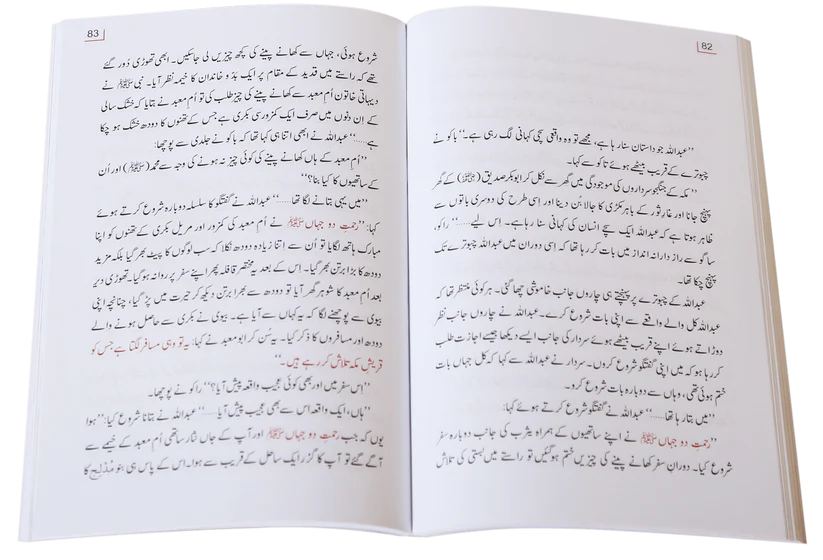 82
”عبداللہ جو داستان سنا رہا ہے، مجھے تو وہ واقعی سچی کہانی لگ رہی ہے۔“ باکو نے
چبوترے کے قریب بیٹھے ہوئے تاکو سے کہا۔
”مکہ کے جنگجو سرداروں کی موجودگی میں گھر سے نکل کر ابوبکر صدیق (رضی اللہ عنہ) کے گھر
پہنچ جانا اور غارِ ثور کے باہر مکڑی کا جالا بُن دینا اور اسی طرح کی دوسری باتوں سے
ظاہر ہوتا ہے کہ عبداللہ ایک سچے انسان کی کہانی سنا رہا ہے۔ اس لیے......“ راکو،
ساگو سے راز دارانہ انداز میں بات کر رہا تھا کہ اسی دوران میں عبداللہ چبوترے تک
پہنچ چکا تھا۔
عبداللہ کے چبوترے پر پہنچتے ہی چاروں جانب خاموشی چھا گئی۔ ہر کوئی منتظر تھا کہ
عبداللہ کل والے واقعے سے اپنی بات شروع کرے۔ عبداللہ نے چاروں جانب نظر
دوڑاتے ہوئے اپنے قریب بیٹھے ہوئے سردار کی جانب ایسے دیکھا جیسے اجازت طلب
کر رہا ہو کہ میں اپنی گفتگو شروع کروں۔ سردار نے عبداللہ سے کہا کہ کل جہاں بات
ختم ہوئی تھی، وہاں سے دوبارہ بات شروع کرو۔
”میں بتا رہا تھا......“ عبداللہ نے گفتگو شروع کرتے ہوئے کہا:
”رحمتِ دو جہاں ﷺ نے اپنے ساتھیوں کے ہمراہ یثرب کی جانب دوبارہ سفر
شروع کیا۔ دورانِ سفر کھانے پینے کی چیزیں ختم ہو گئیں تو راستے میں بستی کی تلاش
83
شروع ہوئی، جہاں سے کھانے پینے کی کچھ چیزیں لی جا سکیں۔ ابھی تھوڑی دُور گئے
تھے کہ راستے میں قدید کے مقام پر ایک بدّو خاندان کا خیمہ نظر آیا۔ نبی ﷺ نے
دیہاتی خاتون اُمِ معبد سے کھانے پینے کی چیز طلب کی تو اُمِ معبد نے بتایا کہ خشک سالی
کے اِن دنوں میں صرف ایک کمزور سی بکری ہے جس کے تھنوں کا دودھ خشک ہو چکا
ہے......“ عبداللہ نے ابھی اتنا ہی کہا تھا کہ باکو نے جلدی سے پوچھا:
”اُمِ معبد کے ہاں کھانے پینے کی کوئی چیز نہ ہونے کی وجہ سے محمد (ﷺ) اور اُن
کے ساتھیوں کا کیا بنا؟“
”میں یہی بتانے لگا تھا......“ عبداللہ نے گفتگو کا سلسلہ دوبارہ شروع کرتے ہوئے
کہا: ”رحمتِ دو جہاں ﷺ نے اُمِ معبد کی کمزور اور مریل بکری کے تھنوں کو اپنا
مبارک ہاتھ لگایا تو اُن سے اتنا زیادہ دودھ نکلا کہ سب لوگوں کا پیٹ بھر گیا بلکہ مزید
دودھ کا بڑا برتن بھر گیا۔ اِس کے بعد یہ مختصر قافلہ پھر اپنے سفر پر روانہ ہو گیا۔ تھوڑی دیر
بعد اُمِ معبد کا شوہر گھر آیا تو دودھ سے بھرا برتن دیکھ کر حیرت میں پڑ گیا، چنانچہ اپنی
بیوی سے پوچھنے لگا کہ یہ کہاں سے آیا ہے۔ بیوی نے بکری سے حاصل ہونے والے
دودھ اور مسافروں کا ذکر کیا۔ یہ سُن کر ابو معبد نے کہا: یہ تو وہی مسافر لگتا ہے جس کو
قریشِ مکہ تلاش کر رہے ہیں۔“
”اِس سفر میں اور بھی کوئی عجیب واقعہ پیش آیا؟“ راکو نے پوچھا۔
”ہاں، ایک واقعہ اس سے بھی عجیب پیش آیا......“ عبداللہ نے بتانا شروع کیا: ”ہوا
یوں کہ جب رحمتِ دو جہاں ﷺ اور آپ کے جاں نثار ساتھی اُمِ معبد کے خیمے سے
آگے گئے تو آپ کا گزر ایک ساحل کے قریب سے ہوا۔ اس کے پاس ہی بنو مُدلج کا